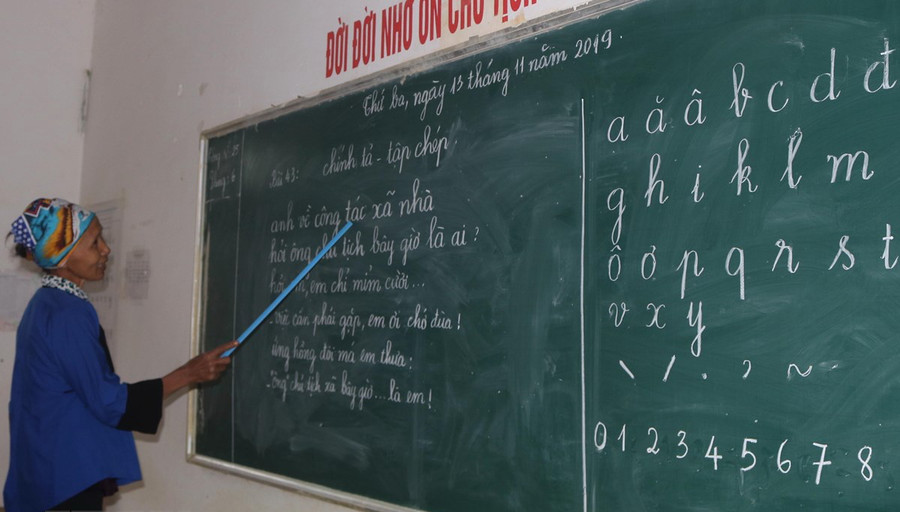 ĐỜI ĐỜI NHỚ ƠN CHỦ TỊCH
Thứ ba, ngày 13 tháng 11 năm 2019.
Bài 43: chính tả - tập chép
anh về công tác xã nhà
hỏi ông chủ tịch bây giờ là ai?
em chỉ mỉm cười...
- việc cần phải gấp, em ơi chớ đùa!
ửng hồng đôi má em thưa:
- "Ông" chủ tịch xã bây giờ... là em!
a ă â b c d đ
g h i k l m
ô ơ p q r s t
v x y
0 1 2 3 4 5 6 7 8